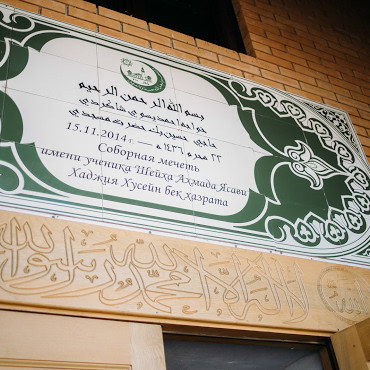 بسم الله الرحمن الرحيم
خواجه احمد يسوي شاكردي
حاجي حسين بك حضرت مسجدي
15.11.2014 г. — ٢٢ محرم ١٤٣٦ ه
Соборная мечеть
имени ученика Шейха Ахмада Ясави
Хаджия Хусейн бек хазрата
لا إله إلا الله محمد رسول الله